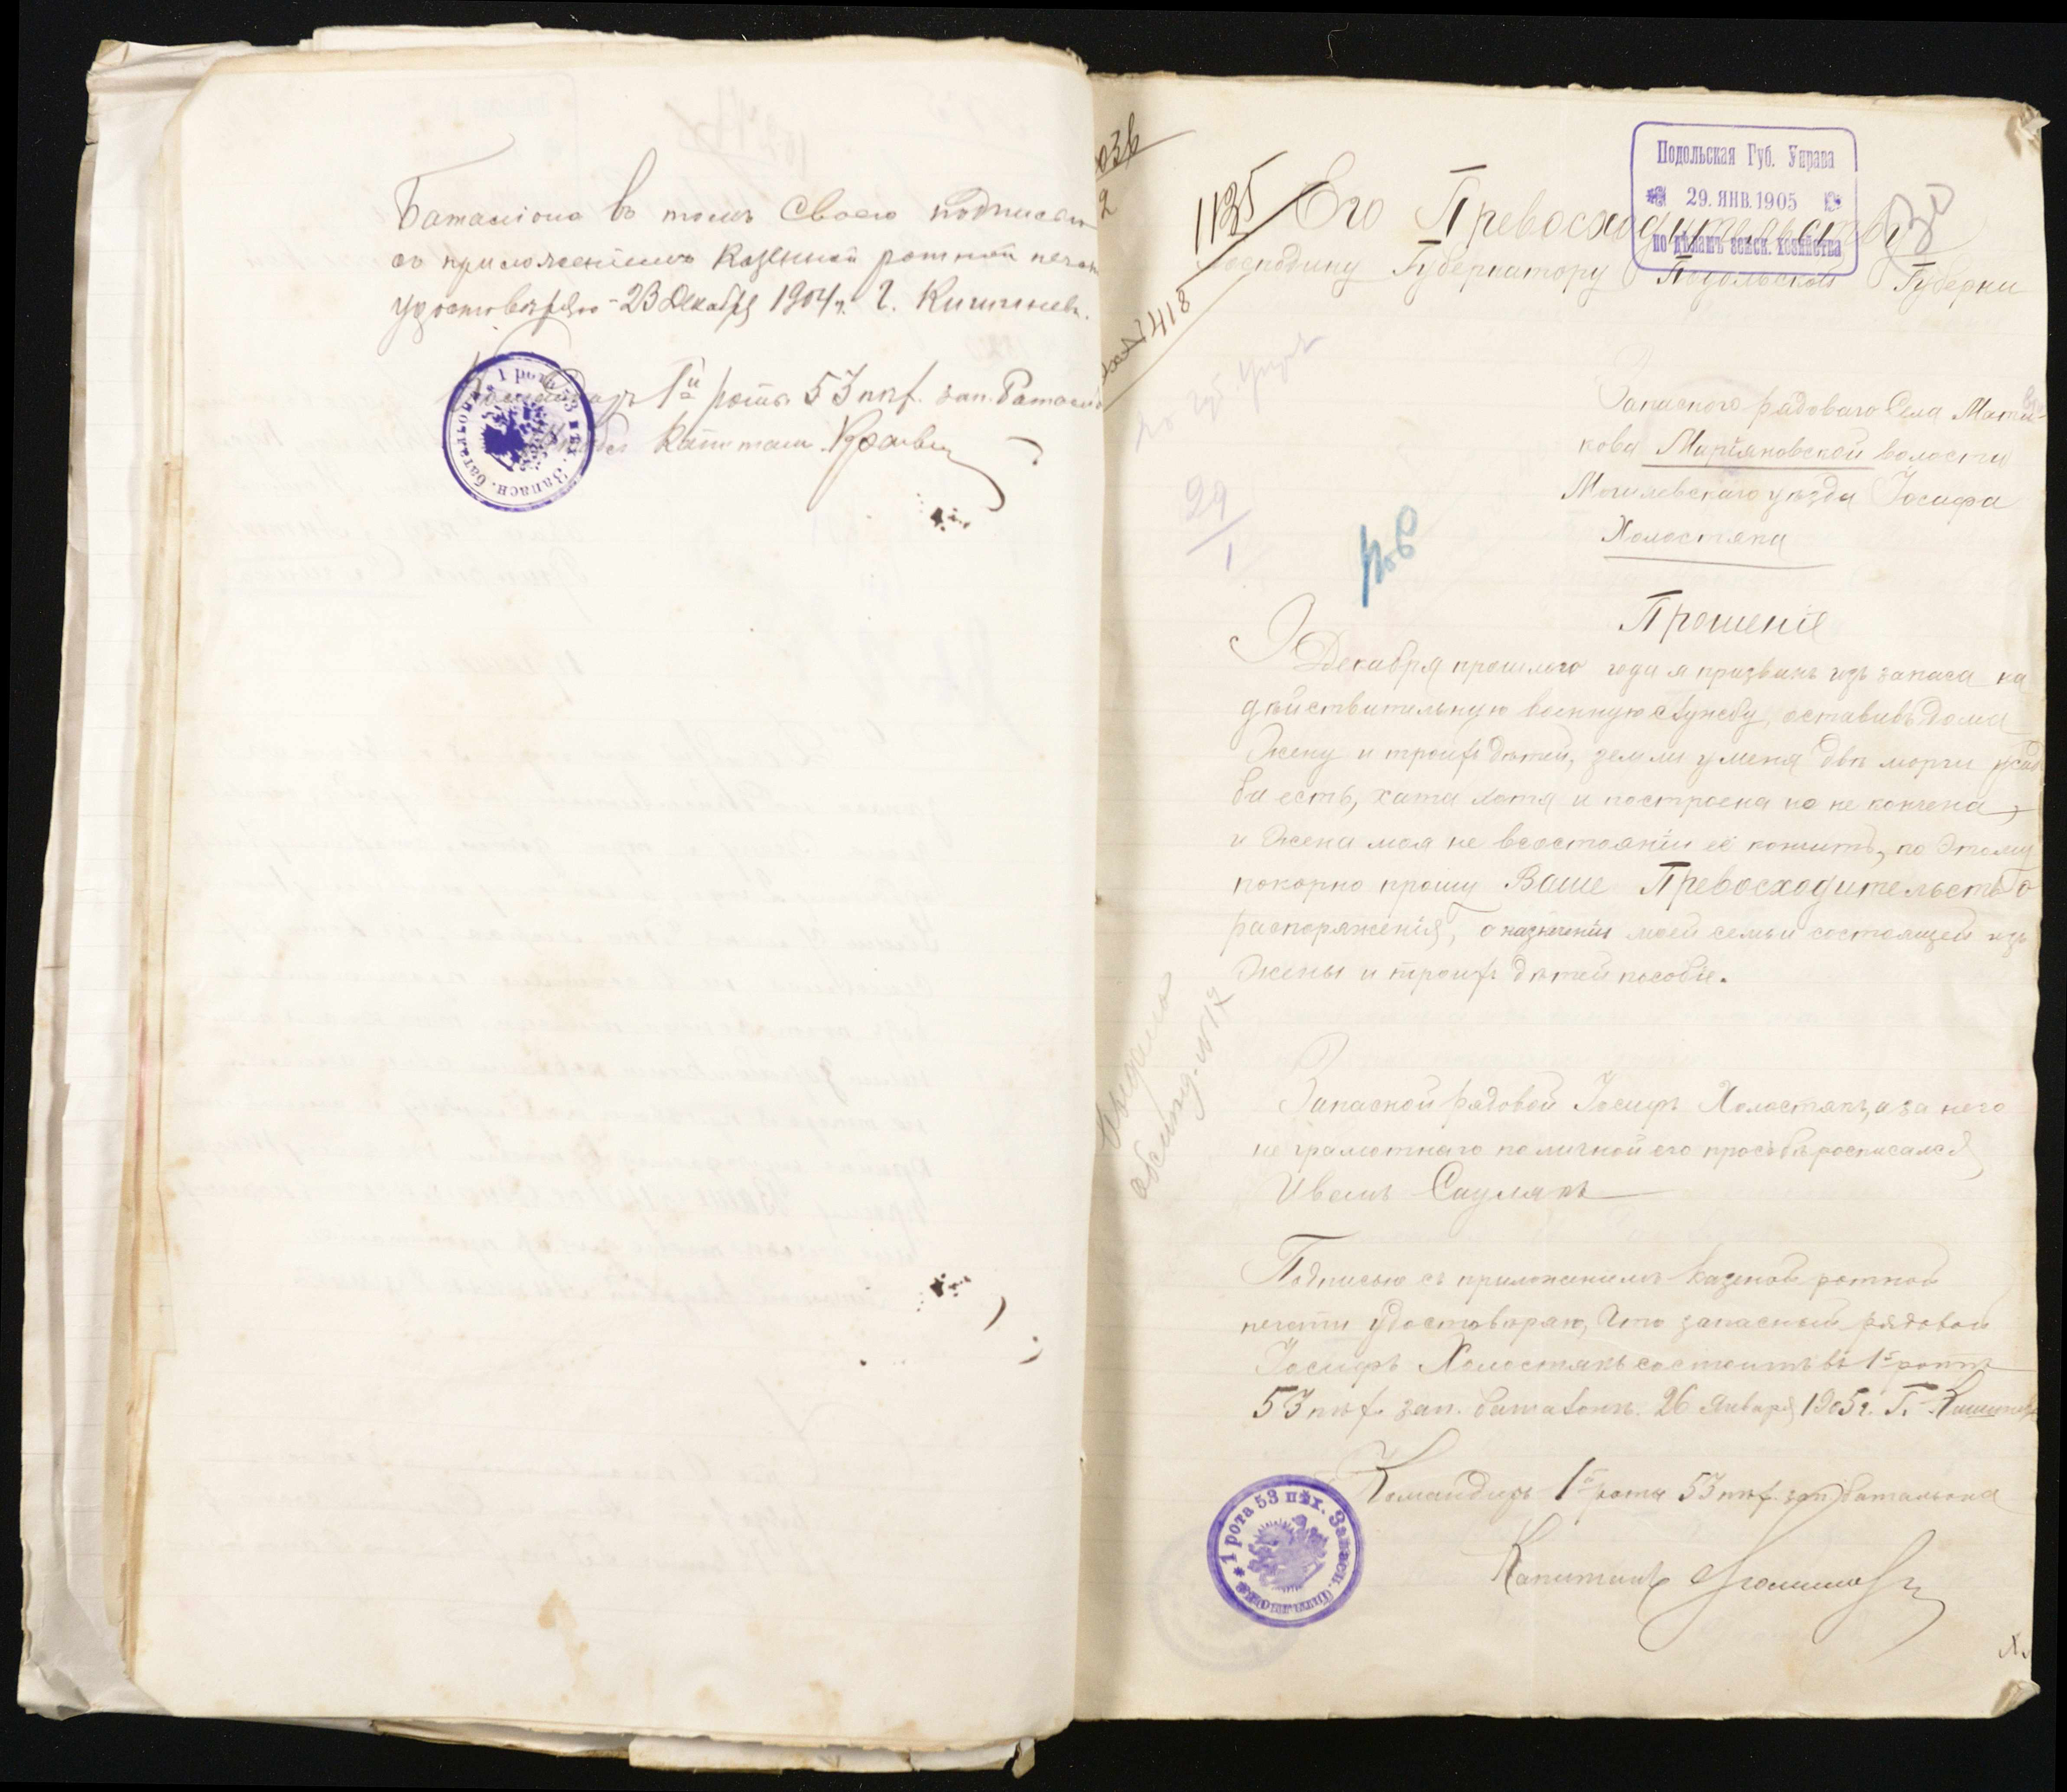 Баталiона въ томъ своею подписью
съ приложенiемъ казенной ротной печати
удостовѣряю - 23 Декабря 1904 г. Г. Кишиневъ.
Командиръ 1й роты 53 пѣх. зап. Баталiо
Капитанъ
1 рота 53 пѣх. Запасн. баталiона
2
1135
Его Превосходительству
Господину Губернатору Подольской Губерни
Подольская Губ. Управа
29. ЯНВ. 1905
по дѣламъ земск. хозяйства
418
29
1
Запасного рядоваго Села Мати-
кова Марьяновской волости
Могилевскаго уѣзда Iосифа
Холостяка
Прошенiе
Декабря прошлого года я призванъ изъ запаса на
дѣйствительную военную службу, оставивъ дома
Жену и троихъ дѣтей, земли у меня двѣ морги усад
ба есть, хата хотя и построена но не кончена,
и Жена моя не всостоянiи её кончить, по Этому
покорно прошу Ваше Превосходительство
распоряженiя, о назначенiи моей семьи состоящей изъ
Жены и троихъ дѣтей пособiе.
Запасной рядовой Iосифъ Холостякъ, а за него
не грамотнаго по личной его просьбѣ росписался
Иванъ Сауляк
Подписью съ приложенiемъ казеной ротной
печати удостовѣряю, что запасный рядовой
Iосифъ Холостякъ состоитъ въ 1й ротѣ
53 пѣх. зап. баталiонѣ. 26 Января 1905 г. Г. Кишинев
Командиръ 1й роты 53 пѣх. зап. батальона
Капитанъ
1 рота 53 пѣх. Запасн. баталiона